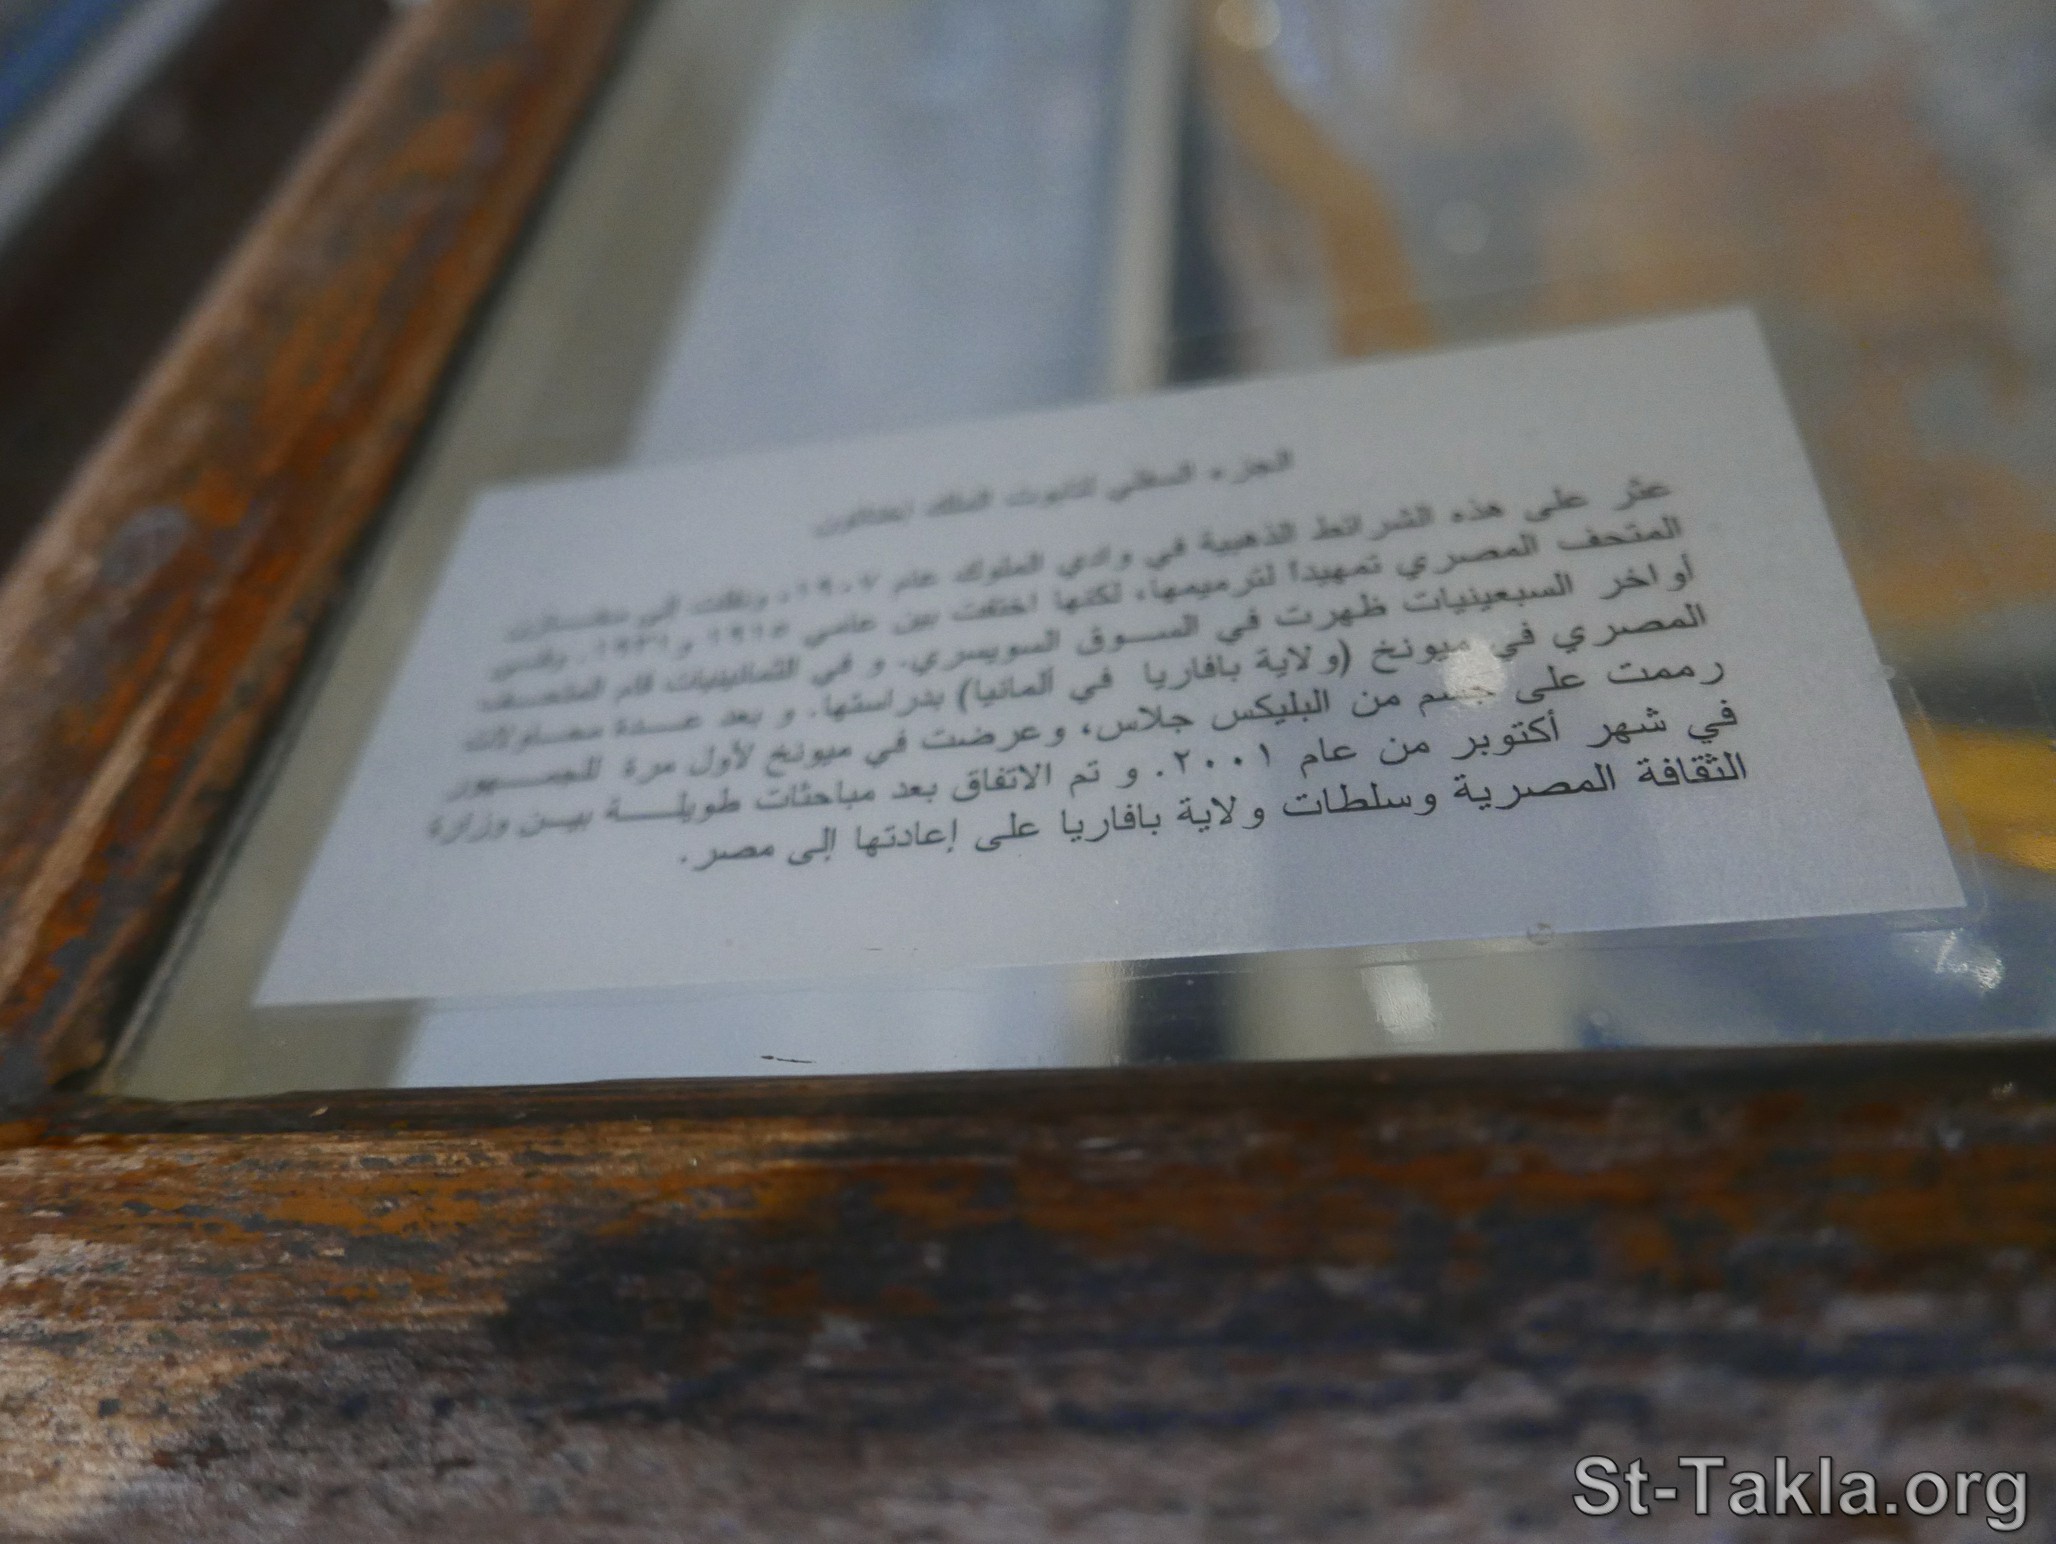 الجزء السفلي لتابوت الملك إخناتون
عثر على هذه الشرائط الذهبية في وادي الملوك عام ١٩٠٧، ونقلت إلى
المتحف المصري تمهيداً لترميمها، لكنها اختفت بين عامي ١٩١٥ و١٩٣١. وفي
أواخر السبعينيات ظهرت في السوق السويسري. و في الثمانينيات قام المتحف
المصري في ميونخ (ولاية بافاريا في ألمانيا) بدراستها. و بعد عدة محاولات
رممت على جسم من البليكس جلاس، وعرضت في ميونخ لأول مرة للجمهور
في شهر أكتوبر من عام ٢٠٠١. و تم الاتفاق بعد مباحثات طويلة بين وزارة
الثقافة المصرية وسلطات ولاية بافاريا على إعادتها إلى مصر.
St-Takla.org